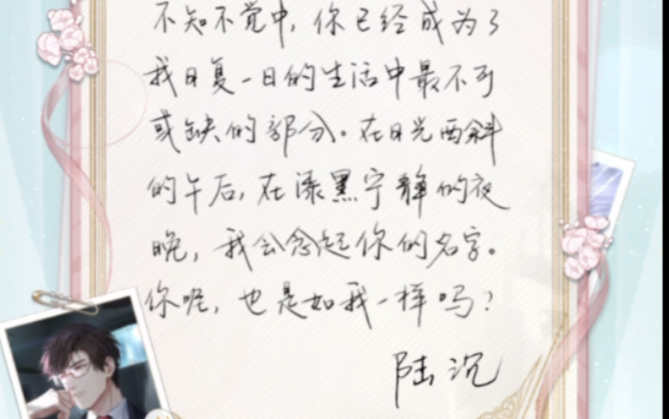 不知不觉中，你已经成为了
我日复一日的生活中最不可
或缺的部分。在日光西斜
的午后，在漆黑宁静的夜
晚，我会念起你的名字。
你呢，也是如我一样吗？
陆沉